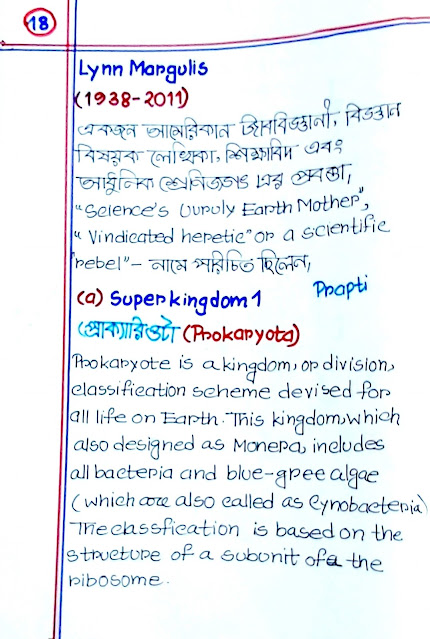 18
Lynn Margulis
(1938-2011)
একজন আমেরিকান জীববিজ্ঞানী, বিজ্ঞান
বিষয়ক লেখিকা, শিক্ষাবিদ এবং
আধুনিক শ্রেণিজগত এর প্রবক্তা,
"Science's Unruly Earth Mother",
"Vindicated heretic" or a scientific
rebel" - নামে পরিচিত ছিলেন,
Prapti
(a) Superkingdom 1
প্রোক্যারিওটা (Prokaryota)
Prokaryote is a kingdom, or division,
classification scheme devised for
all life on Earth. This kingdom, which
also designed as Monera, includes
all bacteria and blue-gree algae
(which are also called as Cynobacteria)
The classfication is based on the
structure of a subunit of the
ribosome.